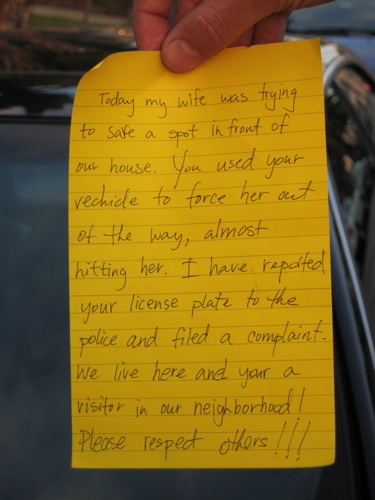 Today my wife was trying
to safe a spot in front of
our house. You used your
vechicle to force her out
of the way, almost
hitting her. I have reported
your license plate to the
police and filed a complaint.
We live here and your a
visitor in our neighborhood!
Please respect others!!!